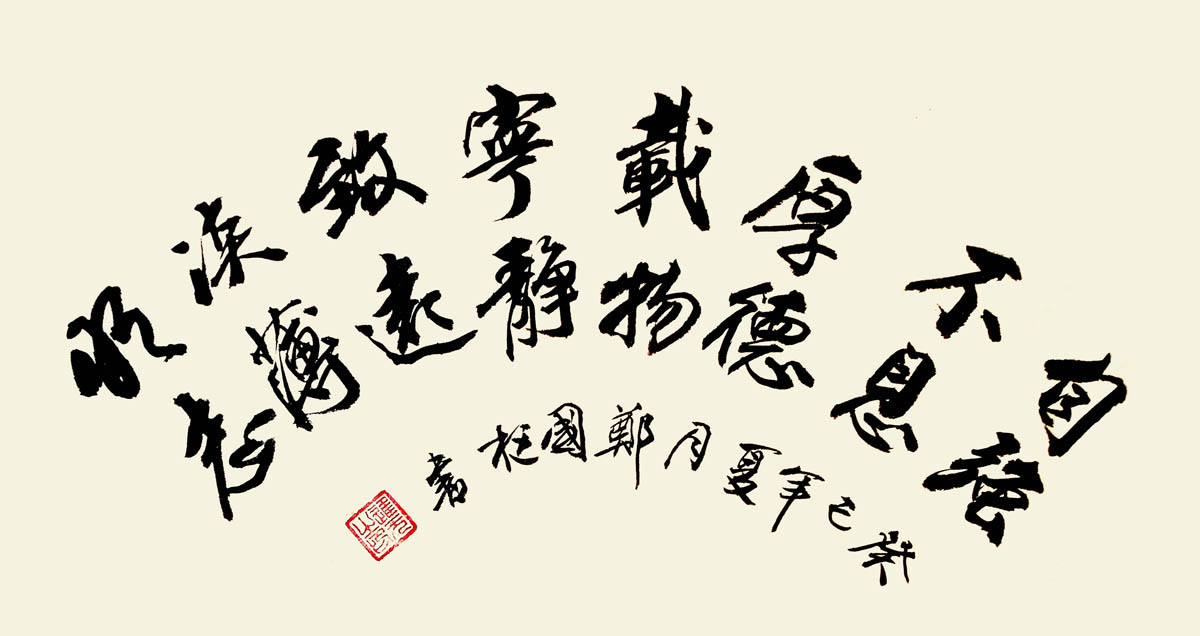 自強
不息
厚德
載物
寧靜
致遠
癸巳年夏月鄭國柱書